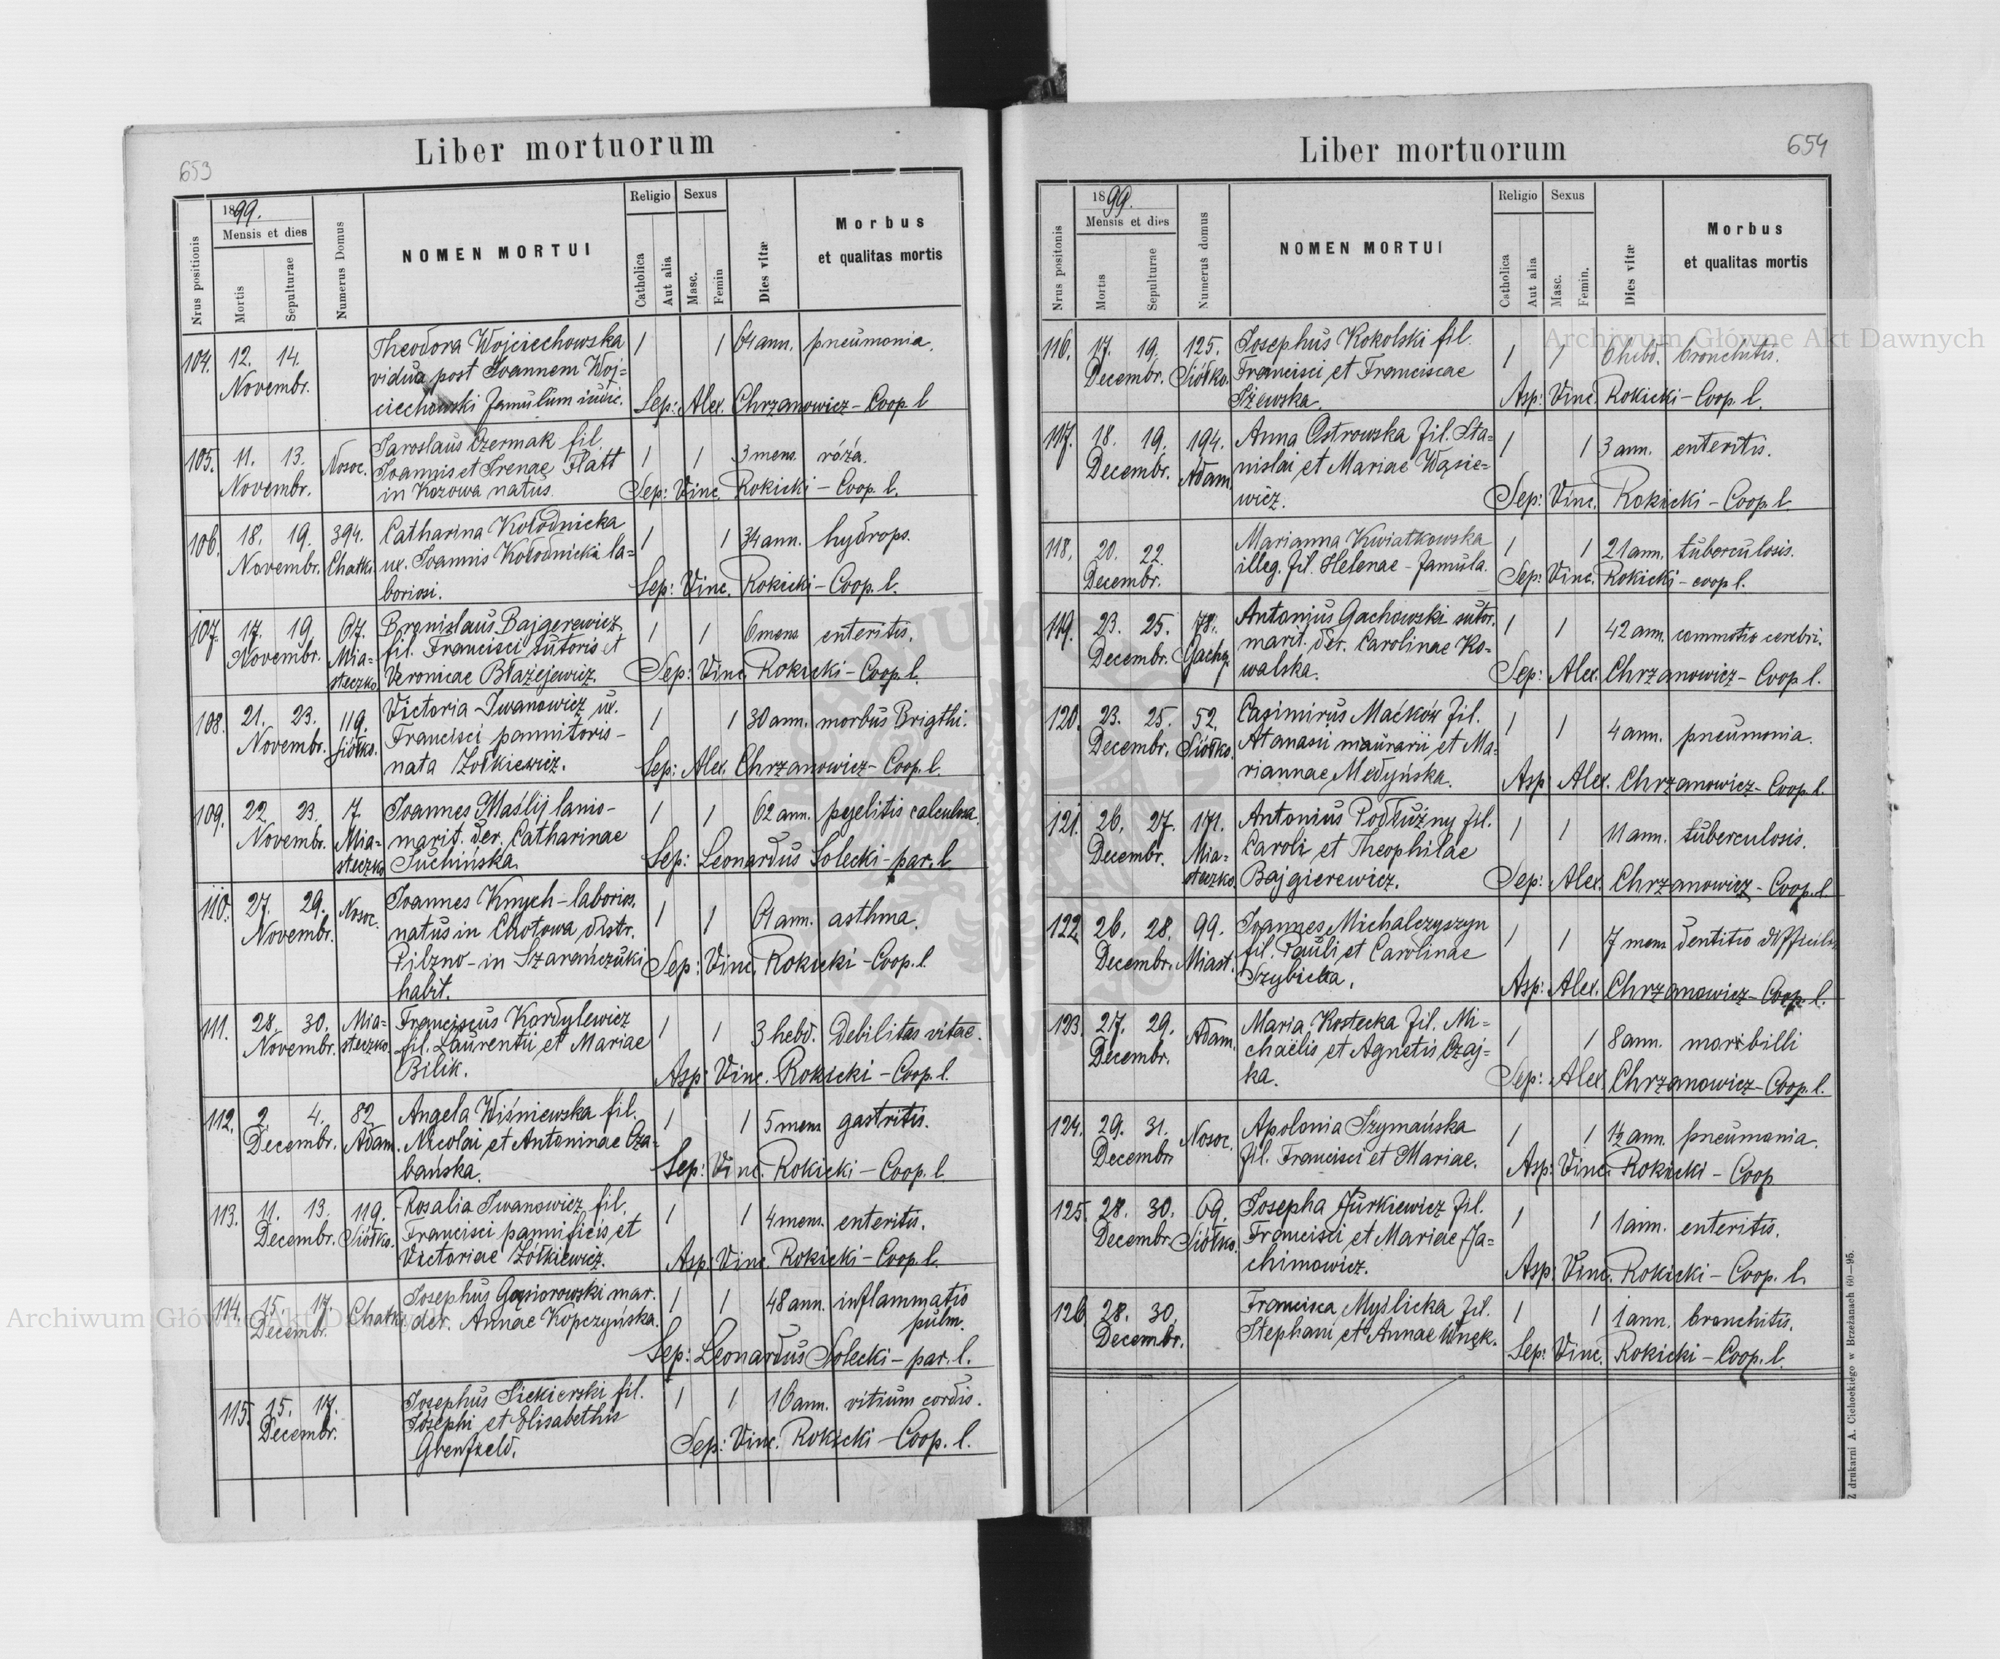 653
Liber mortuorum
Nrus positionis
1899.
Mensis et dies
Mortis
Sepulturae
Numerus Domus
NOMEN MORTUI
Religio
Catholica
Aut alia
Sexus
Masc.
Femin
Dies vitæ
Morbus
et qualitas mortis
104. 12. 14. Theodora Wojciechowska 1 1 64 ann. pneumonia.
Novembr. vidua post Joannem Woj-
ciechowski famulum
Sep: Alex. Chrzanowicz - Coop. l
105. 11. 13. Nosoc. Jaroslaus Czermak fil. 1 1 3 mens. róża.
Novembr. Joannis et Irenae Flatt
in Kozowa natus.
Sep: Vinc. Rokicki - Coop. l.
106. 18. 19. 394. Catharina Kołodnicka 1 1 34 ann. hydrops.
Novembr. Chatki. ux. Joannis Kołodnicki la-
boriosi.
Sep: Vinc. Rokicki - Coop. l.
107. 17. 19 67. Bronislaus Bajgerewicz 1 1 6 mens enteritis.
Novembr. Mia- fil. Francisci sutoris et
steczko Veronicae Błażejewicz.
Sep: Vinc. Rokicki - Coop. l.
108. 21. 23. 119. Victoria Iwanowicz ux. 1 1 30 ann. morbus Brigthi.
Novembr. Siółko. Francisci pannitoris -
nata Żołkiewicz.
Sep: Alex. Chrzanowicz - Coop. l.
109. 22. 23. 7. Joannes Maślij lanio - 1 1 62 ann. pyelitis calculosa.
Novembr. Mia- marit. der. Catharinae
steczko Suchińska.
Sep: Leonardus Solecki - par. l.
110. 27. 29. Nosoc. Joannes Knych - laborios. 1 1 61 ann. asthma.
Novembr. natus in Chotowa distr.
Pilzno - in Szarańczuki
habit.
Sep: Vinc. Rokicki - Coop. l.
111. 28. 30. Mia- Franciscus Kordylewicz 1 1 3 hebd. Debilitas vitae.
Novembr. steczko fil. Laurentii et Mariae
Bilik.
Asp: Vinc. Rokicki - Coop. l.
112. 2. 4. 82. Angela Wiśniewska fil. 1 1 5 mens gastritis.
Decembr. Adam. Nicolai et Antoninae Cza-
bańska.
Sep: Vinc. Rokicki - Coop. l.
113. 11. 13. 119. Rosalia Iwanowicz fil. 1 1 4 mens. enteritis.
Decembr. Siółko. Francisci pannificis et
Victoriae Żółkiewicz.
Asp: Vinc. Rokicki - Coop. l.
114. 15. 17. Chatki Josephus Gąsiorowski mar. 1 1 48 ann. inflammatio
Decembr. der. Annae Kopczyńska. pulm.
Sep: Leonardus Solecki - par. l.
115. 15. 17. Josephus Siekierski fil. 1 1 16 ann. vitium cordis.
Decembr. Josephi et Elisabethis
Grenfzeld.
Sep: Vinc. Rokicki - Coop. l.
Liber mortuorum
654
Nrus positonis
1899.
Mensis et dies
Mortis
Sepulturae
Numerus domus
NOMEN MORTUI
Religio
Catholica
Aut alia
Sexus
Masc.
Femin.
Dies vitæ
Morbus
et qualitas mortis
116. 17. 19. 125. Josephus Kokolski fil. 1 1 6 hebd. bronchitis.
Decembr. Siółko. Francisci et Franciscae
Iżewska.
Asp: Vinc. Rokicki - Coop. l.
117. 18. 19. 194. Anna Ostrowska fil. Sta- 1 1 3 ann. enteritis.
Decembr. Adam. nislai et Mariae Wąsie-
wicz.
Sep: Vinc. Rokicki - Coop. l
118. 20. 22. Marianna Kwiatkowska 1 1 21 ann. tuberculosis.
Decembr. illeg. fil. Helenae - famula.
Sep: Vinc. Rokicki - coop. l.
119. 23. 25. 78. Antonius Gachowski sutor. 1 1 42 ann. commotio cerebri.
Decembr. marit. der. Carolinae Ko-
walska.
Sep: Alex. Chrzanowicz - Coop. l.
120. 23. 25. 52. Casimirus Maćków fil. 1 1 4 ann. pneumonia.
Decembr. Siółko. Atanasii maurarii et Ma-
riannae Medyńska.
Asp: Alex. Chrzanowicz - Coop. l.
121. 26. 27. 171. Antonius Podłużny fil. 1 1 11 ann. tuberculosis.
Decembr. Mia- Caroli et Theophilae
steczko Bajgierewicz.
Sep: Alex. Chrzanowicz - Coop. l
122 26. 28. 99. Joannes Michalczyszyn 1 1 7 mens dentitio difficilis
Decembr. Miast. fil. Pauli et Carolinae
Szybicka.
Asp: Alex. Chrzanowicz - Coop. l.
123. 27. 29. Adam. Maria Kostecka fil. Mi- 1 1 8 ann. morbilli
Decembr. chaëlis et Agnetis Czaj-
ka.
Sep: Alex. Chrzanowicz - Coop. l.
124. 29. 31. Nosoc. Apolonia Szymańska 1 1 1/2 ann. pneumonia.
Decembr. fil. Francisci et Mariae.
Asp: Vinc. Rokicki - Coop
125. 28. 30. 69. Josepha Jurkiewicz fil. 1 1 1 ann. enteritis.
Decembr. Siółko. Francisci et Mariae Ja-
chimowicz.
Asp: Vinc. Rokicki - Coop. l.
126. 28. 30. Francisca Myślicka fil. 1 1 1 ann. bronchitis.
Decembr. Stephani et Annae Wnęk.
Sep: Vinc. Rokicki - Coop. l.
Z drukarni A. Cichockiego w Brzeżanach 60—95.
Archiwum Główne Akt Dawnych
Archiwum Główne Akt Dawnych